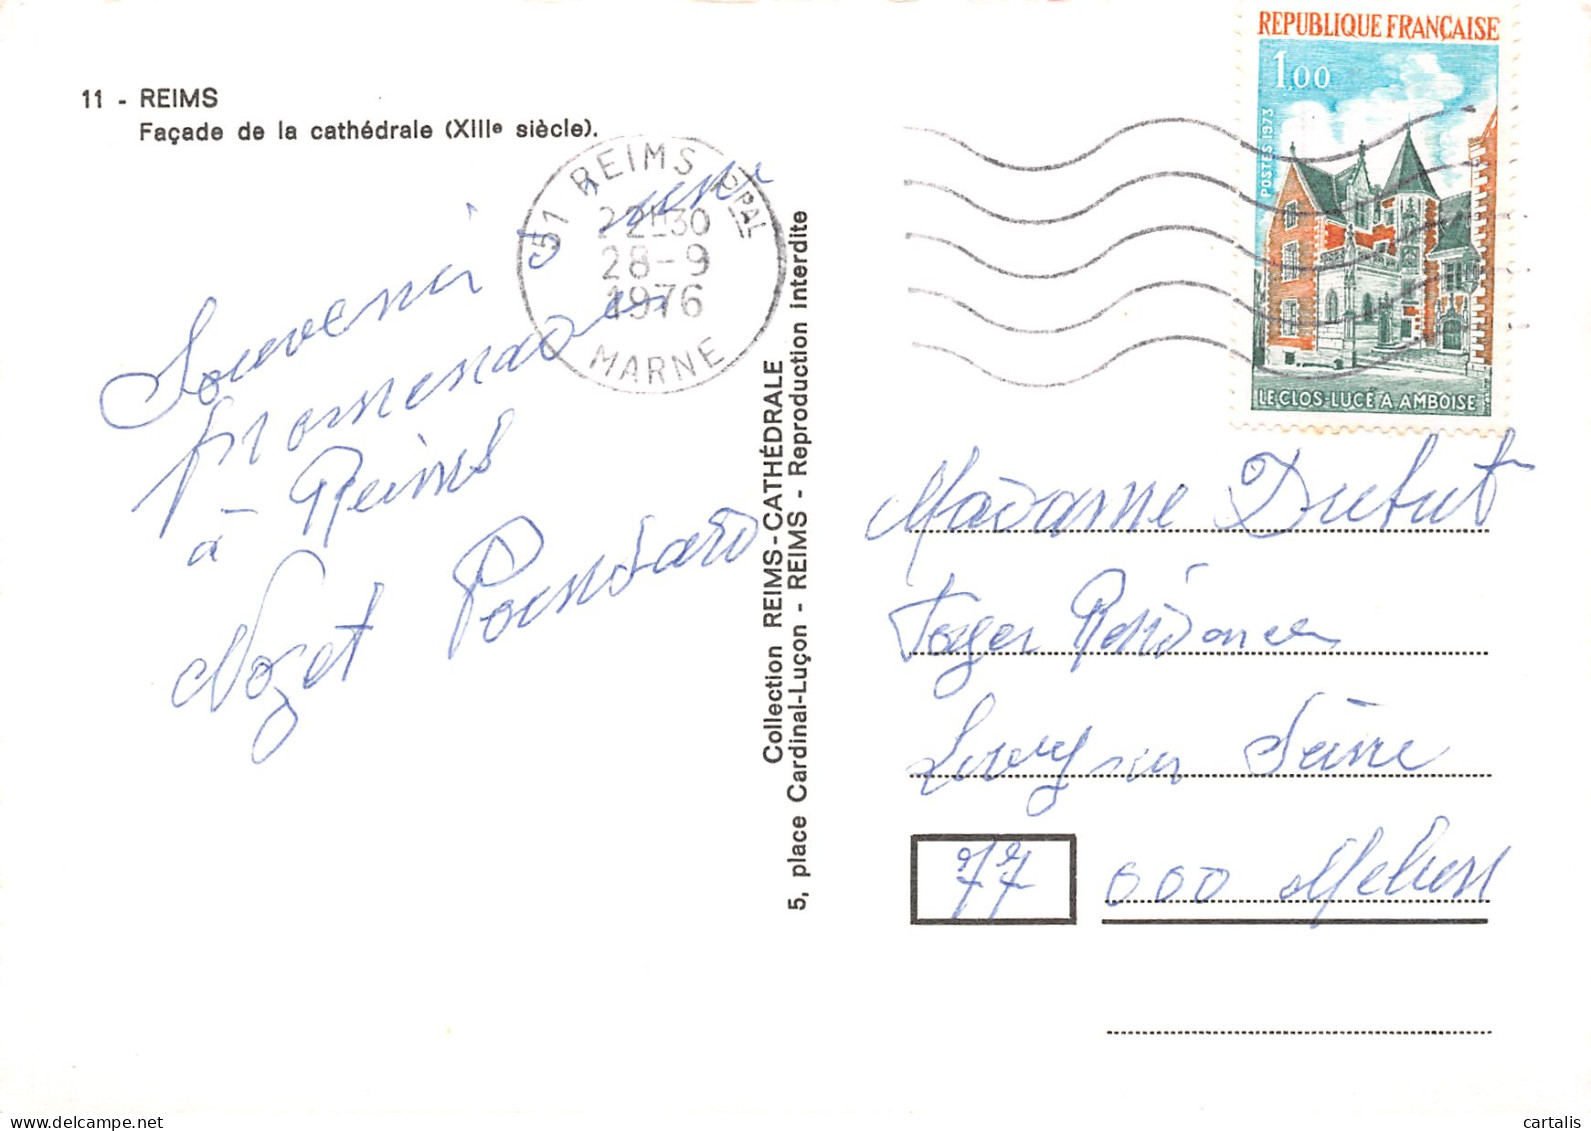 11 - REIMS
Façade de la cathédrale (XIIIe siècle).
51 REIMS PPAL
22H30
28-9
1976
MARNE
REPUBLIQUE FRANÇAISE
1,00
POSTES 1973
LE CLOS-LUCÉ A AMBOISE
Souvenir d'une
promenade
à Reims
Nozet Poinsard
Collection REIMS-CATHÉDRALE
5, place Cardinal-Luçon - REIMS - Reproduction interdite
Madame Dubut
Foyer Résidence
sur Seine
77 000 Melun
cartalis